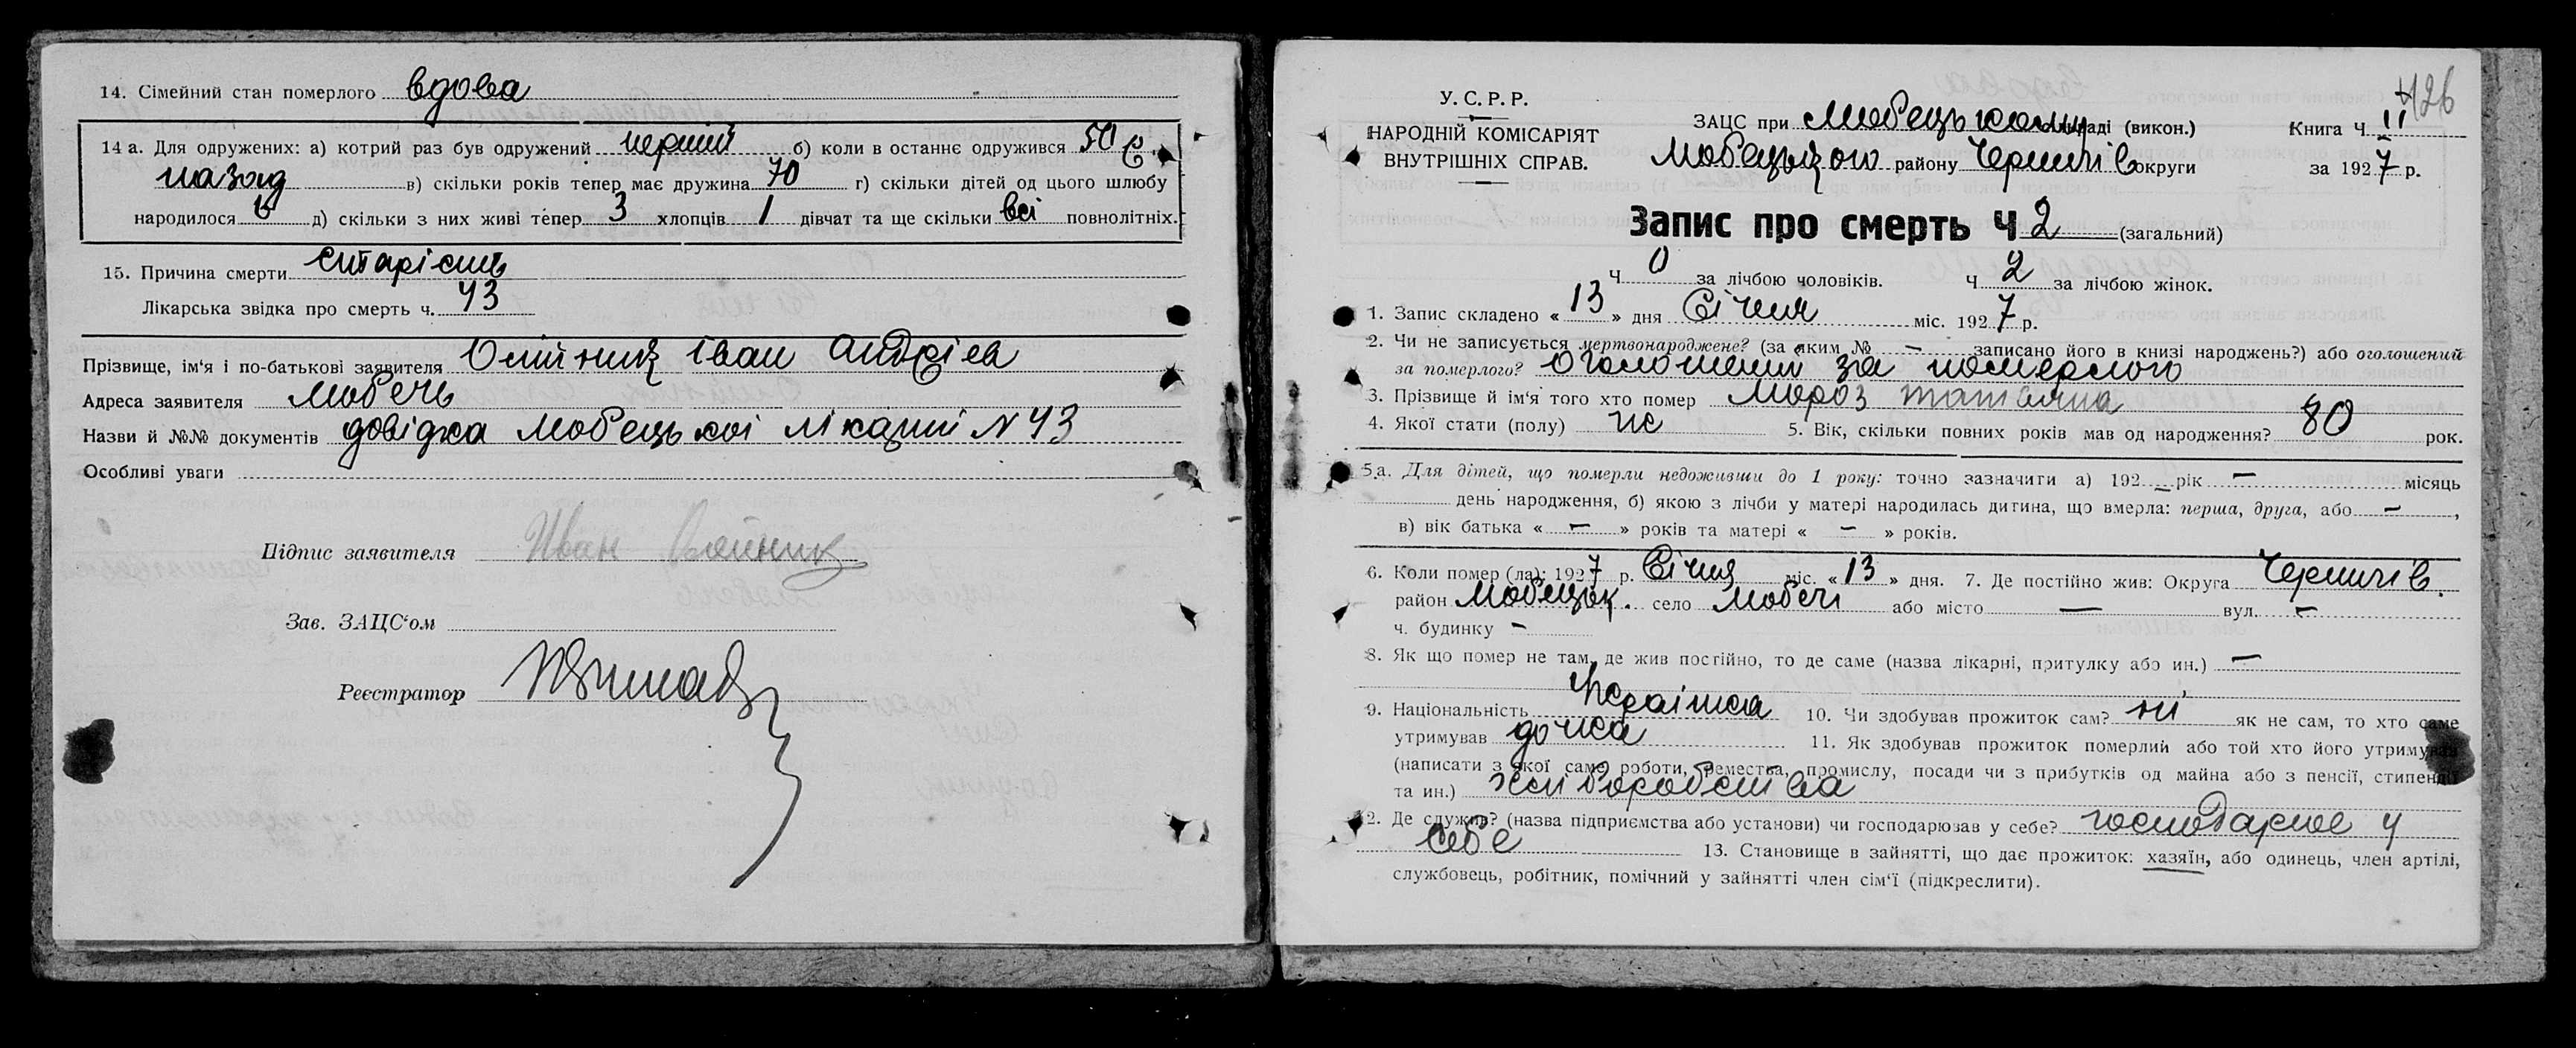 14. Сімейний стан померлого вдова
14 а. Для одружених: а) котрий раз був одружений перший б) коли в останнє одружився 50 р.
назад в) скільки років тепер має дружина 70 г) скільки дітей од цього шлюбу
народилося 6 д) скільки з них живі тепер 3 хлопців 1 дівчат та ще скільки всі повнолітніх.
15. Причина смерти старість
Лікарська звідка про смерть ч. 43
Прізвище, ім'я і по-батькові заявителя Олійник Іван Андрієв
Адреса заявителя Любечь
Назви й №№ документів довідка Любецької лікарні N 43
Особливі уваги
Підпис заявителя Иван Олейник
Зав. ЗАЦС'ом
Реєстратор
426
У. С. Р. Р.
НАРОДНІЙ КОМІСАРІЯТ
ВНУТРІШНІХ СПРАВ.
ЗАЦС при Любецькому раді (викон.) Книга Ч II
Любецького району Чернигів округи за 1927 р.
Запис про смерть Ч 2 (загальний)
Ч 0 за лічбою чоловіків. Ч 2 за лічбою жінок.
1. Запис складено « 13 » дня Січня міс. 1927 р.
2. Чи не записується мертвонароджене? (за яким № — записано його в книзі народжень?) або оголошений
за померлого? оголошений за померлого
3. Прізвище й ім'я того хто помер Мороз Татьяна
4. Якої стати (полу) же 5. Вік, скільки повних років мав од народження? 80 рок.
5а. Для дітей, що померли недоживши до 1 року: точно зазначити а) 192 — рік — місяць
день народження, б) якою з лічби у матері народилась дитина, що вмерла: перша, друга, або — ,
в) вік батька « — » років та матері « — » років.
6. Коли помер (ла): 1927 р. Січня міс. « 13 » дня. 7. Де постійно жив: Округа Чернигів.
район Любецьк. село Любечі або місто — вул. —
ч. будинку —
8. Як що помер не там, де жив постійно, то де саме (назва лікарні, притулку або ин.) —
9. Національність Українка 10. Чи здобував прожиток сам? ні як не сам, то хто саме
утримував дочка 11. Як здобував прожиток померлий або той хто його утримував
(написати з якої саме роботи, ремества, промислу, посади чи з прибутків од майна або з пенсії, стипендії
та ин.) хліборобства
12. Де служив? (назва підприємства або установи) чи господарював у себе? господарює у
себе 13. Становище в зайнятті, що дає прожиток: хазяїн, або одинець, член артілі,
службовець, робітник, помічний у зайнятті член сім'ї (підкреслити).